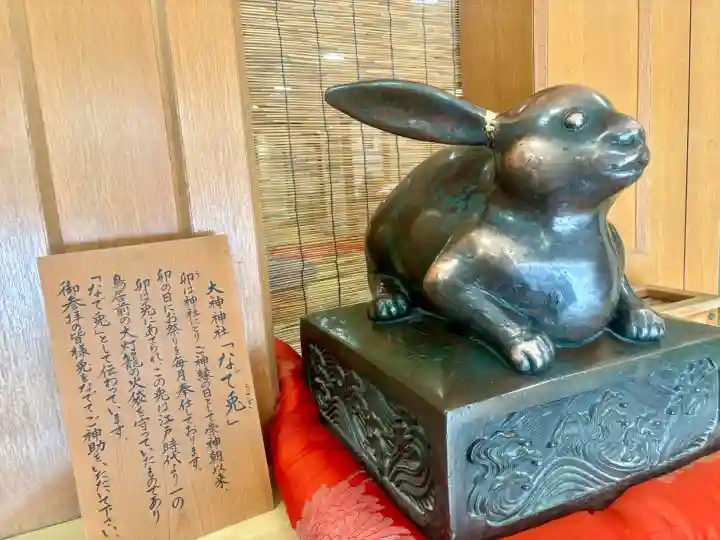 大神神社「なで兎」
卯は神社になりご神縁の日として崇神朝以来、
卯の日にお祭りを毎月奉仕しております。
卯は兎にあてられ、この兎は江戸時代より一の
鳥居前の大灯籠の火袋を守っていたものであり
「なで兎」として伝わっています。
御参拝の皆様兎をなでてご神助をいただいて下さい。